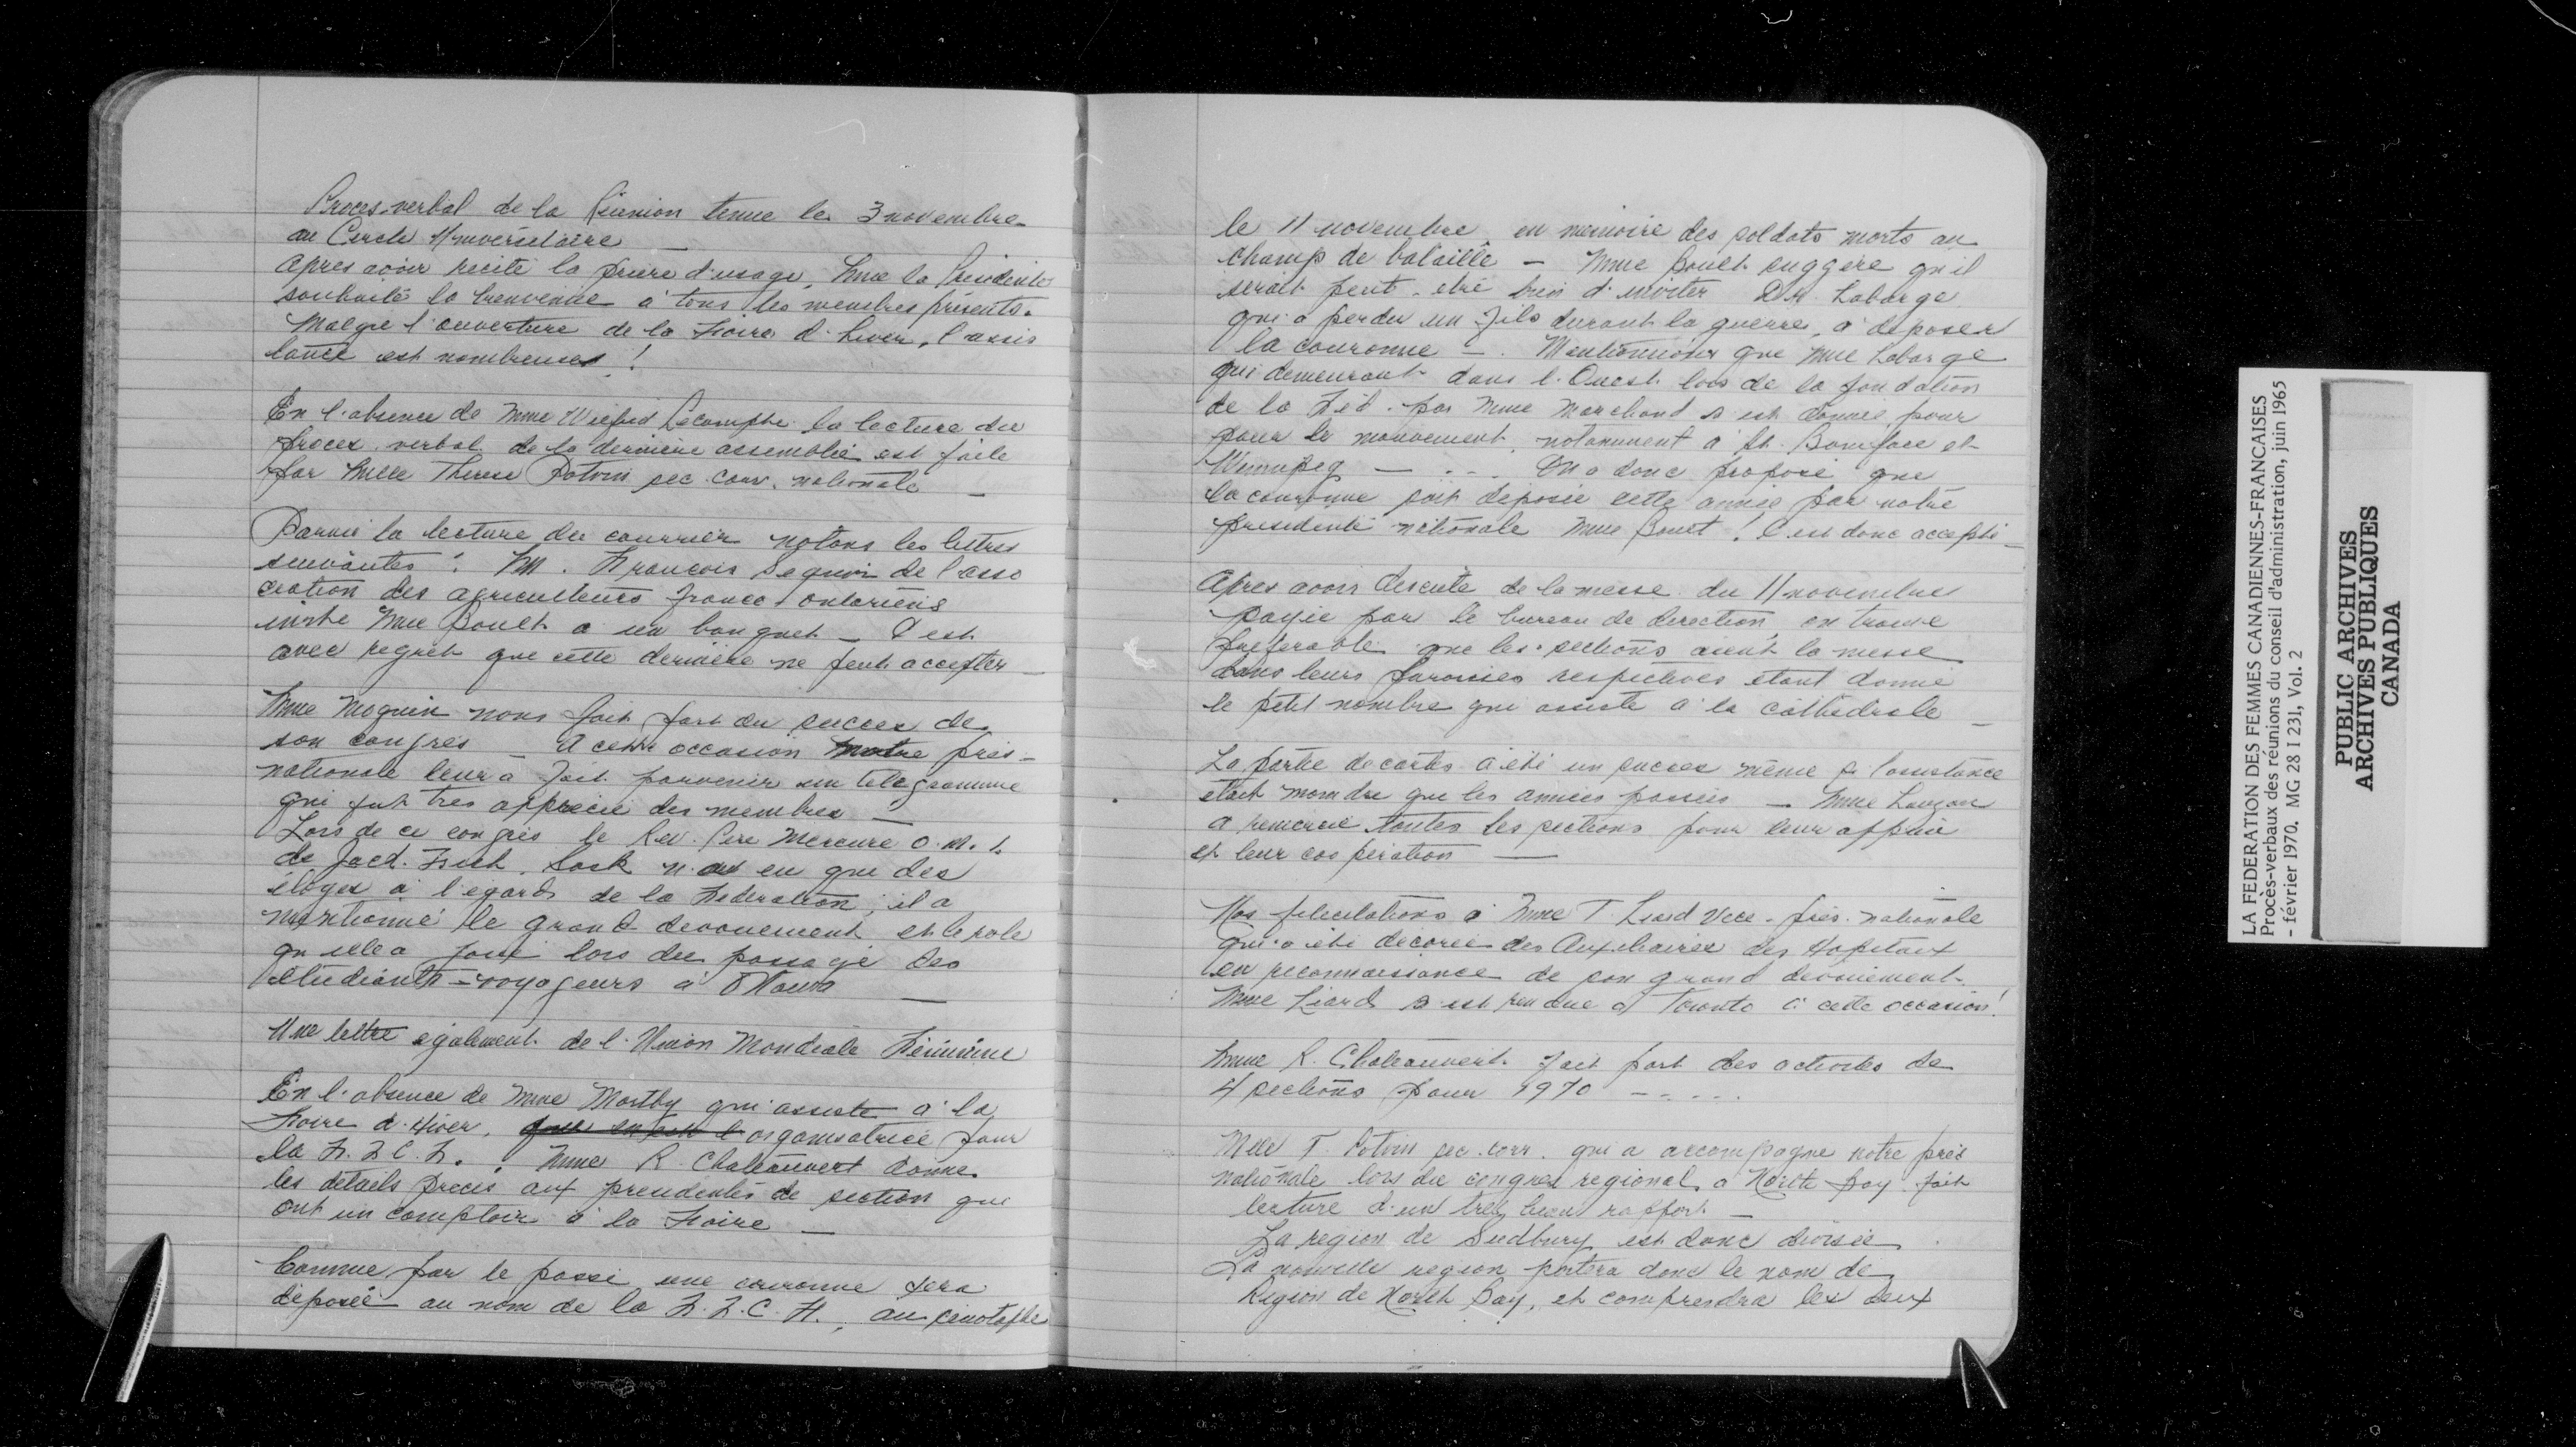 Proces-verbal de la Réunion tenue le 3 novembre
au Cercle Universitaire —
Apres avoir recité la priere d'usage, Mme la Présidente
souhaite la bienvenue à tous les membres présents.
Malgre l'ouverture de la Foire d'hiver, l'assis
tance est nombreuses !
En l'absence de Mme Wilfrid Lecompte la lecture du
proces-verbal de la derniere assemblée est faite
par Melle Therese Potvin sec. corr. nationale —
Parmi la lecture du courrier notons les lettres
suivantes : M. Francois Seguin de l'asso
ciation des agriculteurs franco-ontariens
invite Mme Boult a un banquet — C'est
avec regret que cette derniere ne peut accepter —
Mme Moquin nous fait part du succes de
son congres — A cette occasion notre prés-
nationale leur a fait parvenir un telegramme
qui fut tres apprecié des membres —
Lors de ce congrès le Rev. Pere Mercure O.M.I.
de Sask n'a eu que des
éloges à l'égard de la Federation ; il a
mentionné le grand devouement et le role
qu'elle a joué lors du passage des
étudiants-voyageurs à Ottawa —
Une lettre également de l'Union Mondiale Féminine
En l'absence de Mme Mostby qui assiste a la
Foire d'Hiver, organisatrice pour
la F.F.C.F. . Mme R. Chateauvert donne
les détails precis aux presidentes de section qui
ont un comptoir à la Foire —
Comme par le passé une couronne sera
deposée au nom de la F.F.C.F., au cénotaphe
le 11 novembre en memoire des soldats morts au
champ de bataille — Mme Boult suggère qu'il
serait peut-etre bien d'inviter Labarge
qui a perdu un fils durant la guerre, a deposer
la couronne — . Mentionnons que Mme Labarge
qui demeurant dans l'Ouest lors de la fondation
de la Féd. par Mme Marchand s'est donnée pour
pour le mouvement, notamment à St. Boniface et
Winnipeg — . . - On a donc proposé que
la couronne soit deposée cette année par notre
presidente nationale Mme Boult ! C'est donc accepté —
Apres avoir discuté de la messe du 11 novembre
payée par le bureau de direction, on trouve
préferable que les sections aient la messe
dans leurs paroisses respectives étant donné
le petit nombre qui assiste a la cathédrale —
La partie de cartes a été un succes même si l'assistance
était moindre que les années passées — Mme Lauzon
a remercié toutes les sections pour leur appui
et leur cooperation —
Nos felicitations a Mme T. Liard Vice-prés. nationale
qui a été decorée des Auxiliaires des Hopitaux
en reconnaissance de son grand dévouement.
Mme Liard s'est rendue a Toronto a cette occasion!
Mme R. Chateauvert fait part des activités de
4 sections pour 1970 - - . . .
Melle T. Potvin sec. corr. qui a accompagné notre prés
nationale lors du congres regional, a North Bay fait
lecture d'un tres beau rapport —
La region de Sudbury est donc divisée .
La nouvelle region portera donc le nom de
Region de North Bay, et comprendra les deux
LA FEDERATION DES FEMMES CANADIENNES-FRANCAISES
Procès-verbaux des réunions du conseil d'administration, juin 1965
- février 1970. MG 28 I 231, Vol. 2
PUBLIC ARCHIVES
ARCHIVES PUBLIQUES
CANADA